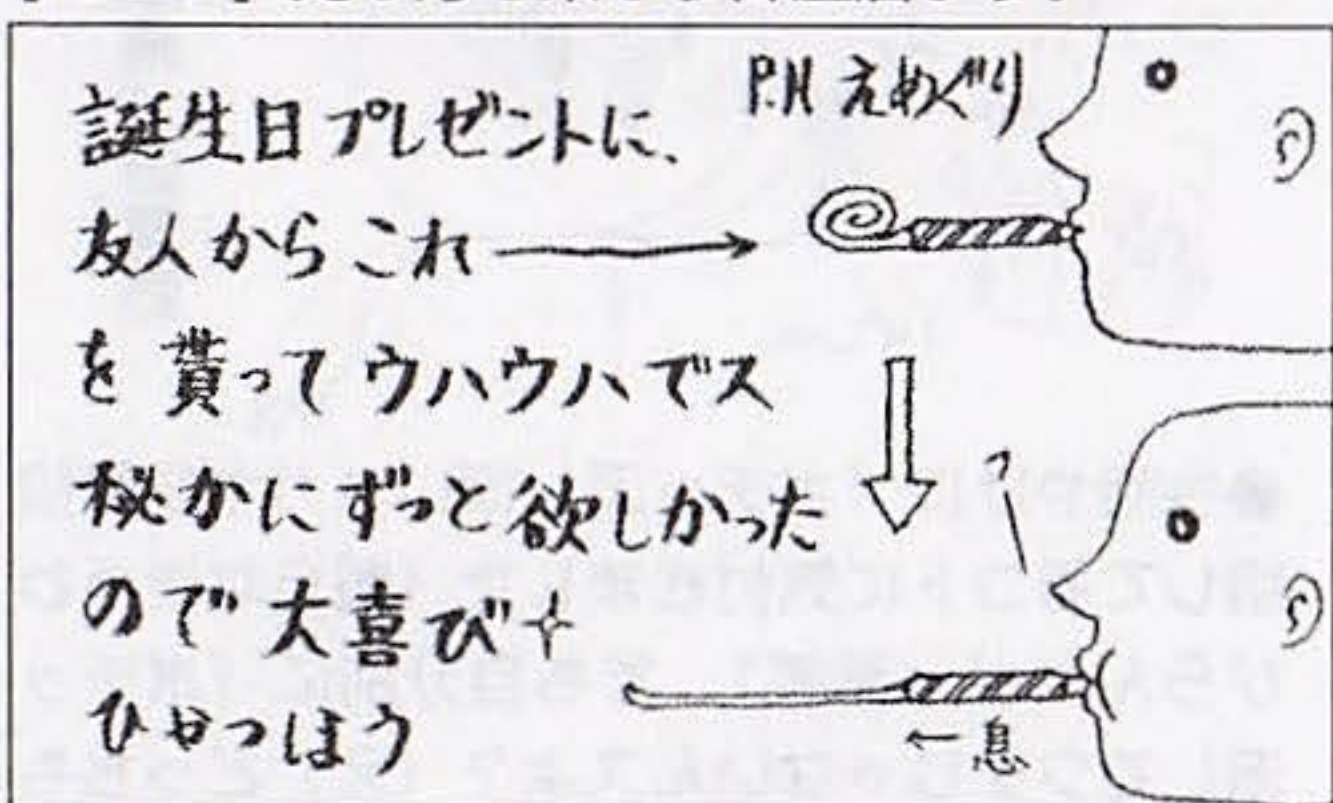 誕生日プレゼントに、
友人から これ
を 貰って ウハウハでス
秘かに ずっと 欲しかった
ので 大喜び
ひゃっほう
P.N えめぐり
←息